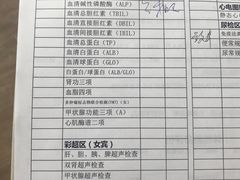 血清碱性磷酸酶（ALP）
血清总胆红素（TBIL）
血清直接胆红素（DBIL）
血清间接胆红素（IBIL）
血清总蛋白（TP）
血清白蛋白（ALB）
血清球蛋白（GLO）
白蛋白/球蛋白（ALB/GLO）
肾功三项
血脂四项
甲状腺功能三项（A）
心肌酶谱二项
彩超区（女宾）
肝、胆、胰、脾超声检查
双肾超声检查
甲状腺超声检查
心电图
静态心
尿检区
免疫法
便常规
尿常规